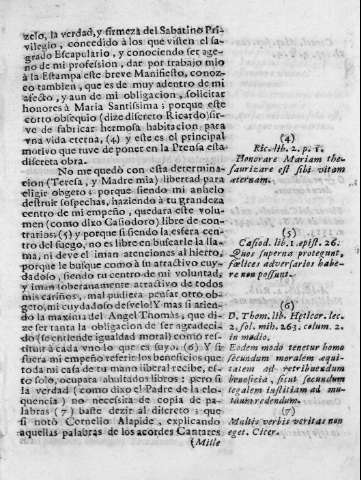 zelo, la verdad, y firmeza del Sabatino Pri-
vilegio, concedido à los que visten el sa-
grado Escapulario, y conociendo ser age-
no de mi profesion, dar por trabajo mio
à la Estampa este breve Manifiesto, conoz-
co tambien, que es de muy adentro de mi
afecto, y aun de mi obligacion, solicitar
honores à Maria Santissima; porque este
corto obsequio (dize discreto Ricardo) sir-
ve de fabricar hermosa habitacion para
vna vida eterna, (4) y este es el principal
motivo que tuve de poner en la Prensa esta
discreta obra.
No me quedò con esta determina-
cion (Teresa, y Madre mia) libertad para
eligir objeto; porque siendo mi anhelo
destruir sospechas, haziendo à tu grandeza
centro de mi empeño, quedara este volu-
men (como dixo Casiodoro) libre de con-
trarios, (5) y porque si siendo la esfera cen-
tro del fuego, no es libre en buscarle la lla-
ma, ni deve el iman atenciones al hierro,
porque le busque como à su atractivo cuy-
dadoso, siendo tu centro de mi voluntad,
y iman soberanamente atractivo de todos
mis cariños, mal pudiera pensar otro obge-
to, mi cuydadoso desvelo! Y mas si atien-
do la maxima del Angel Thomàs, que di-
ze ser tanta la obligacion de ser agradeci-
do (se entiende igualdad moral) como res-
tituir à cada vno lo que es suyo. (6) Y si
fuera mi empeño referir los beneficios que
toda mi casa de tu mano liberal recibe, es-
to solo, ocupara abultados libros; pero si
la verdad (como dixo el Padre de la elo-
quencia) no necesita de copia de pa-
labras (7) baste dezir al discreto: que
si notò Cornelio Alapide, explicando
aquellas palabras de los acordes Cantares
(Mille
(4)
Ric. lib. 2. p. 1.
Honorare Mariam the-
saurizare est sibi vitam
æternam.
(5)
Casiod. lib. 1. apist. 26.
Quos superna protegunt,
fœlices adversarios habe-
re non possunt.
(6)
D. Thom. lib.
2. sol. mih. 263. colum. 2.
in medio.
Eodem modo tenetur homo
secundum moralem æqui-
tatem ad retribuendum
beneficia, sicut secundum
legalem institiam ad mu-
tuum redendum.
(7)
Multis verbis veritas non
eget. Cicer.